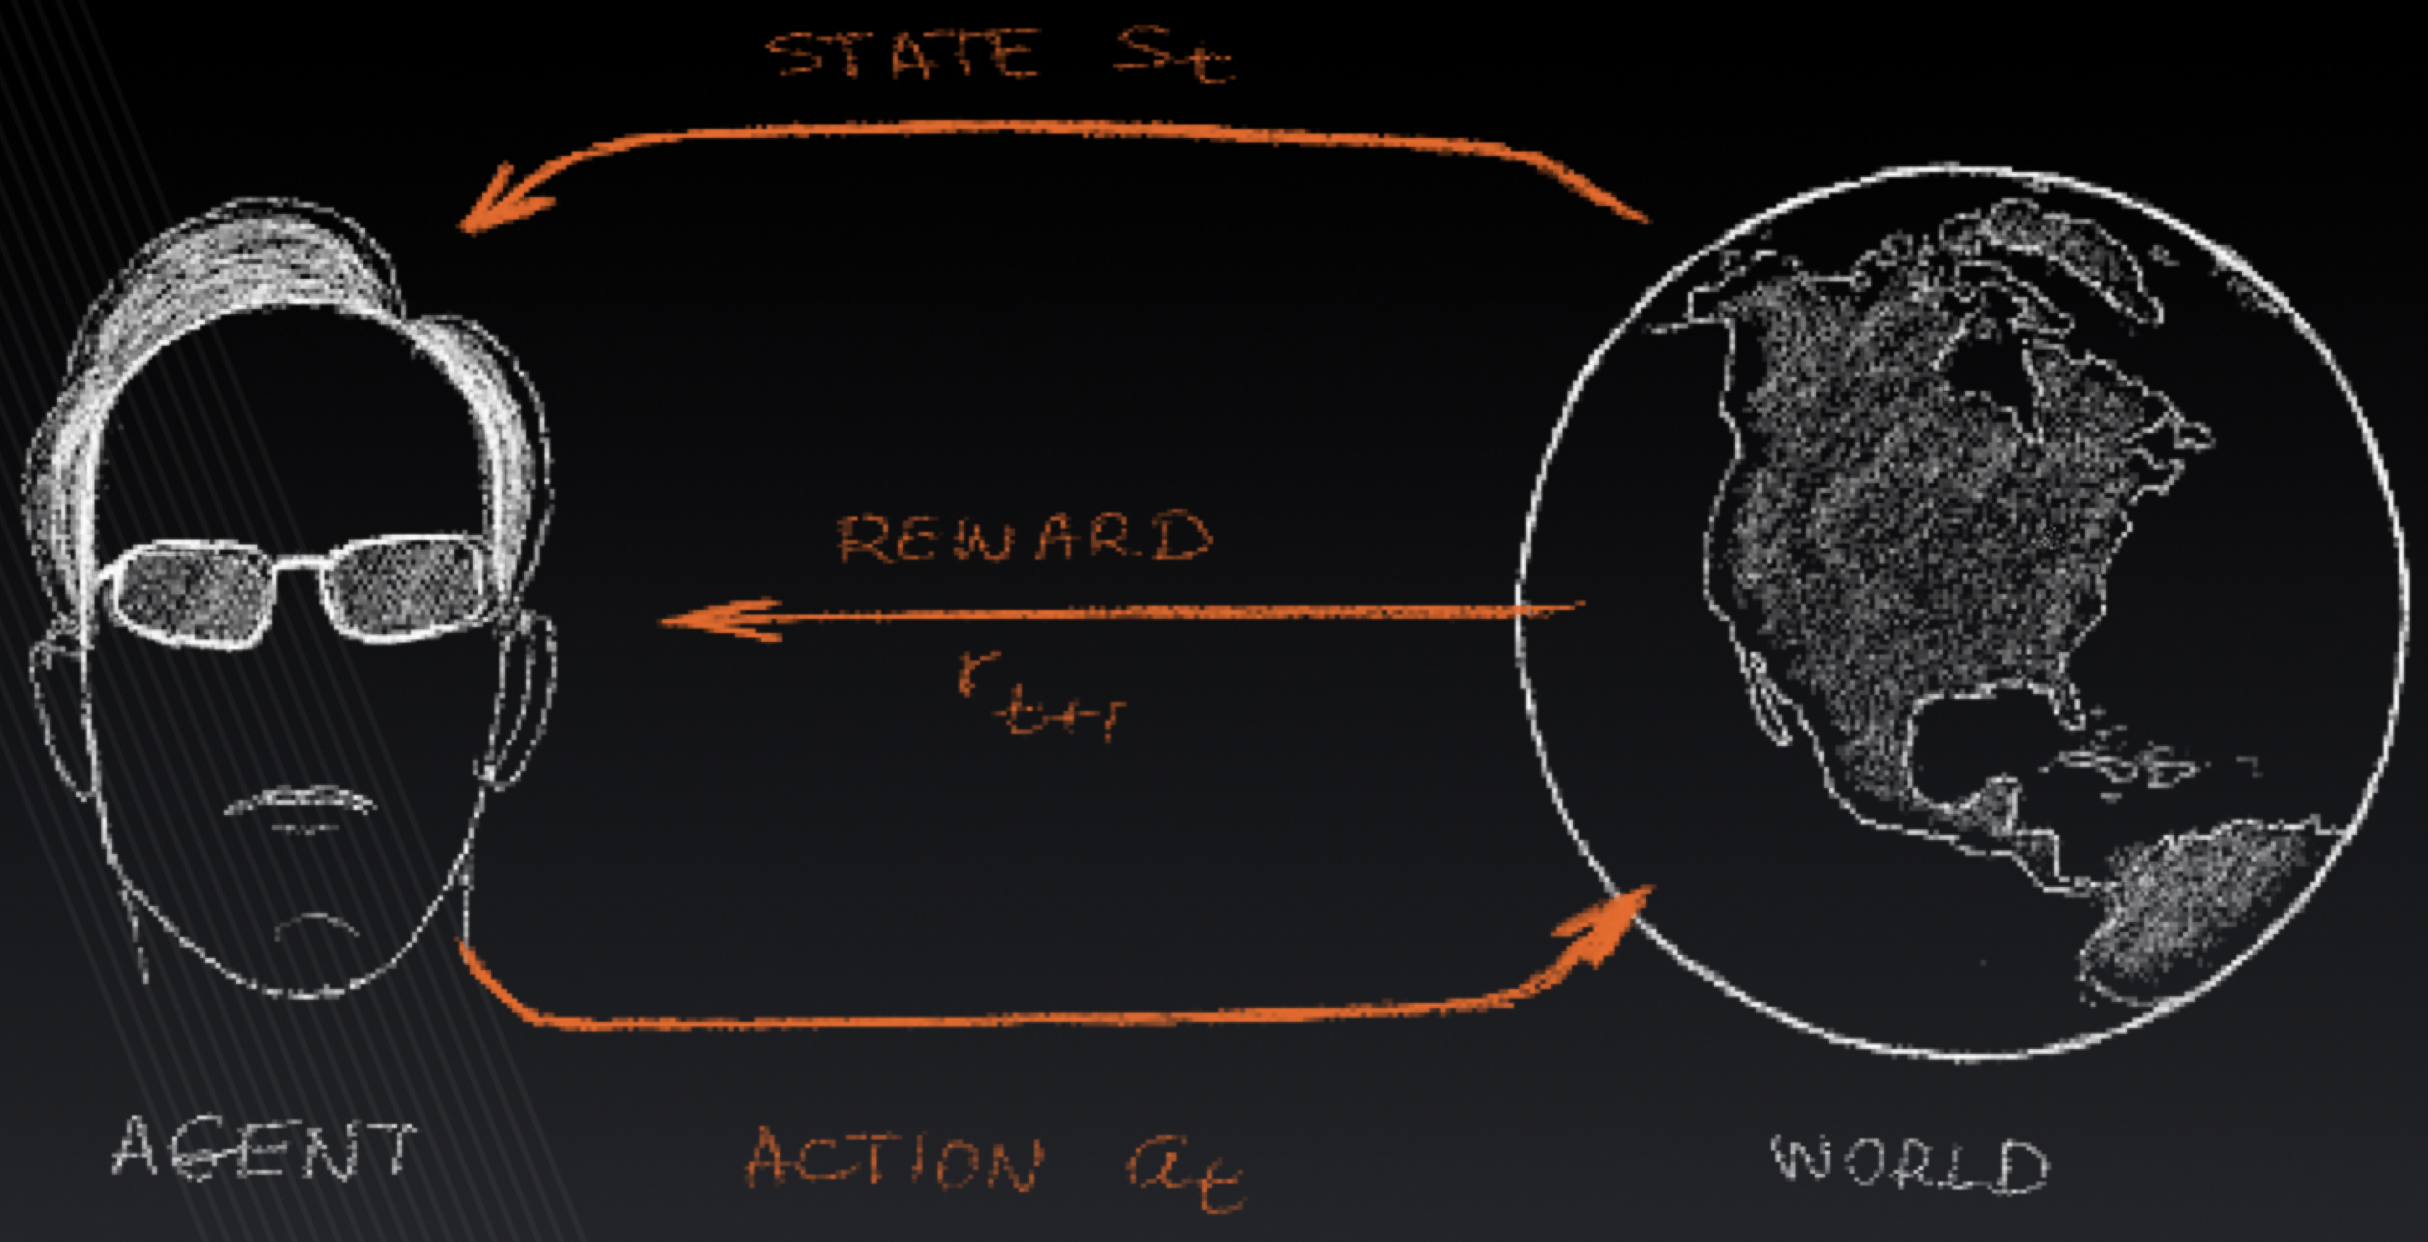 STATE St
REWARD
rt+1
AGENT
ACTION at
WORLD